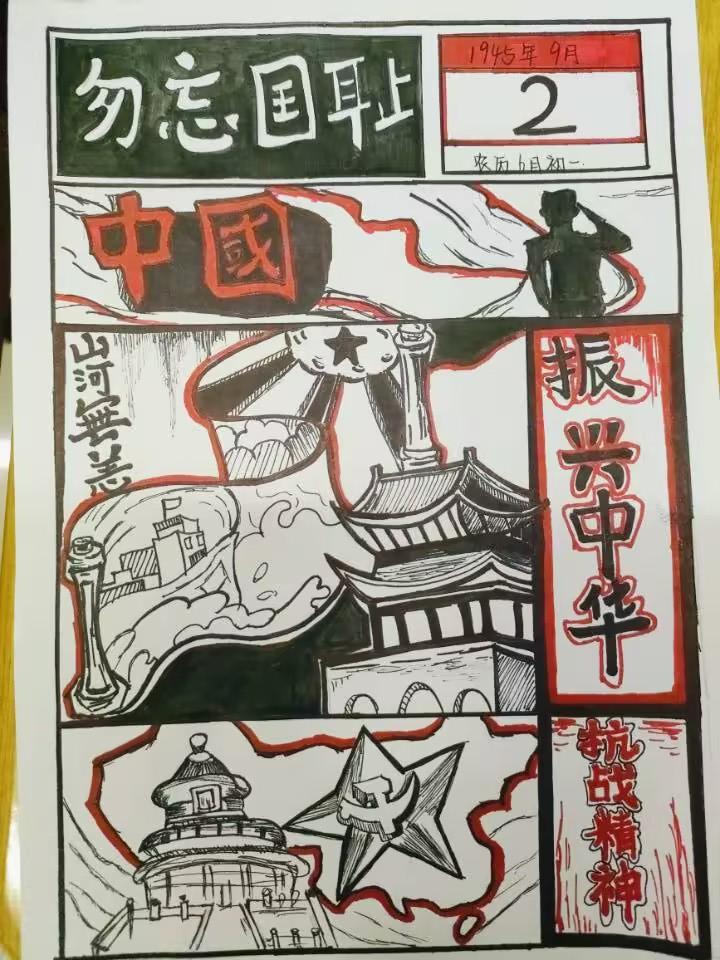 勿忘国耻
1945年9月
2
农历6月初二
中國
山河無恙
振兴中华
抗战精神